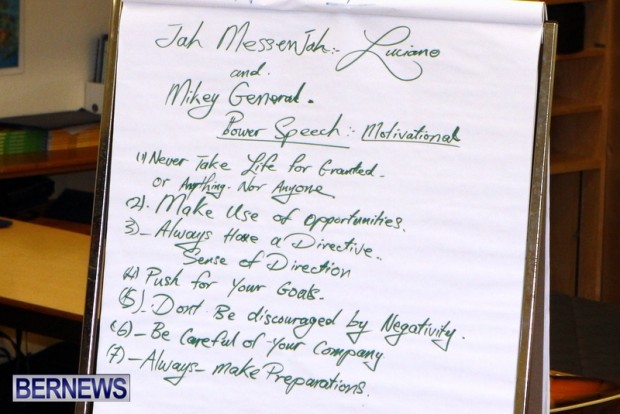 Jah MessenJah:- Luciano
and.
Mikey General.
Power Speech:- Motivational
(1) Never Take Life for Granted.
or Anything. Nor Anyone
(2). Make Use of opportunities.
3)- Always Have a Directive..
Sense of Direction
(4) Push for Your Goals.
(5). Dont Be discouraged by Negativity.
(6)- Be Careful of Your Company
(7)- Always- make Preparations.
BERNEWS